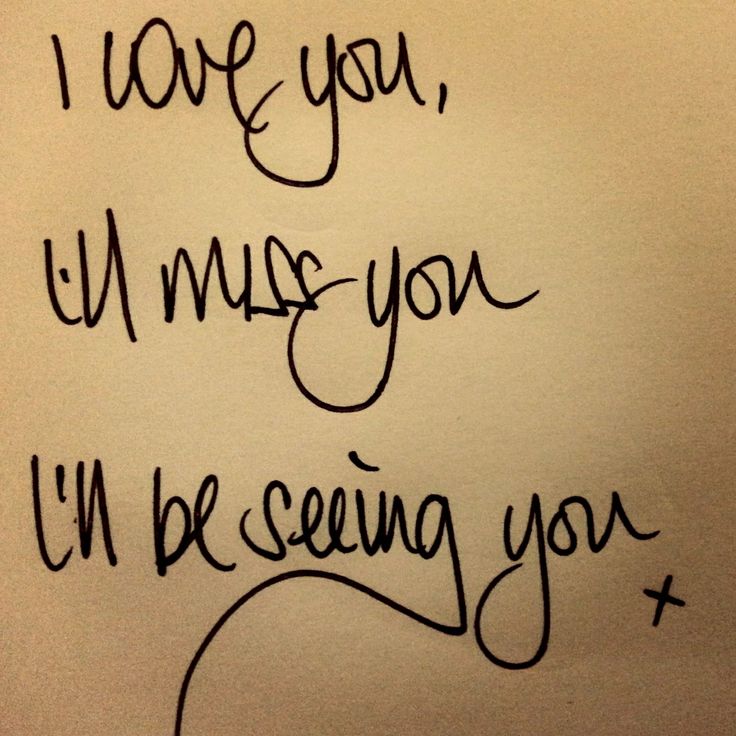 I love you,
I'll miss you
I'll be seeing you
x